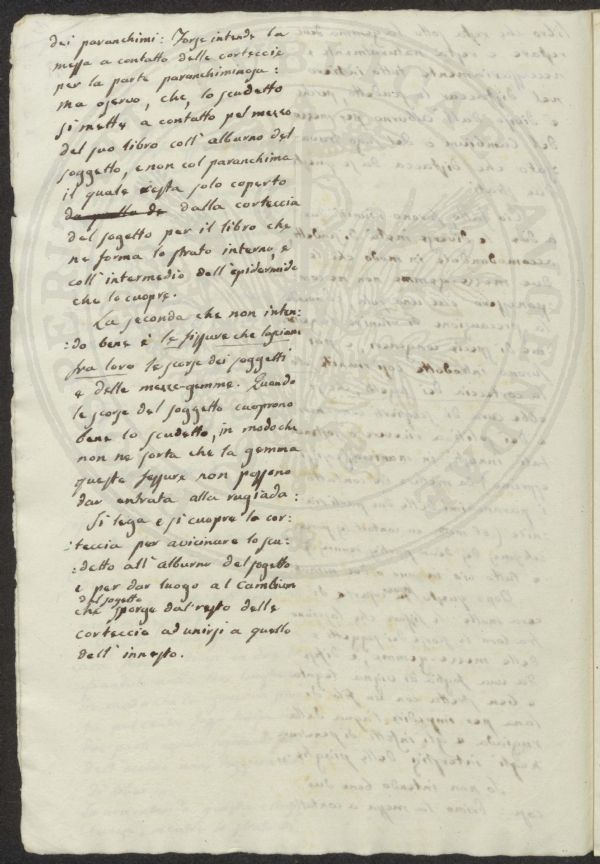 dei paranchimi: Forse intende la
messa a contatto delle corteccie
per la parte paranchiminosa:
ma osservo, che, lo scudetto
si mette a contatto pel mezzo
del suo libro coll' alburno del
soggetto, e non col paranchima
il quale resta solo coperto
da quello de dalla corteccia
del sogetto per il libro che
ne forma lo strato interno, e
coll' intermedio dell' epidermide
che lo cuopre.
La seconda che non inten:
:do bene è le fissure che lasciano
fra loro le scorse dei soggetti
e delle mezze-gemme. Quando
le scorse del soggetto cuoprono
bene lo scudetto, in modo che
non ne sorta che la gemma
queste fessure non possono
dar entrata alla rugiada:
Si lega e si cuopre la cor:
:teccia per avicinare lo scu:
:detto all' alburno del sogetto
e per dar luogo al Cambium
del sogetto
che sporge dal resto delle
corteccie ad unirsi a quello
dell' innesto.